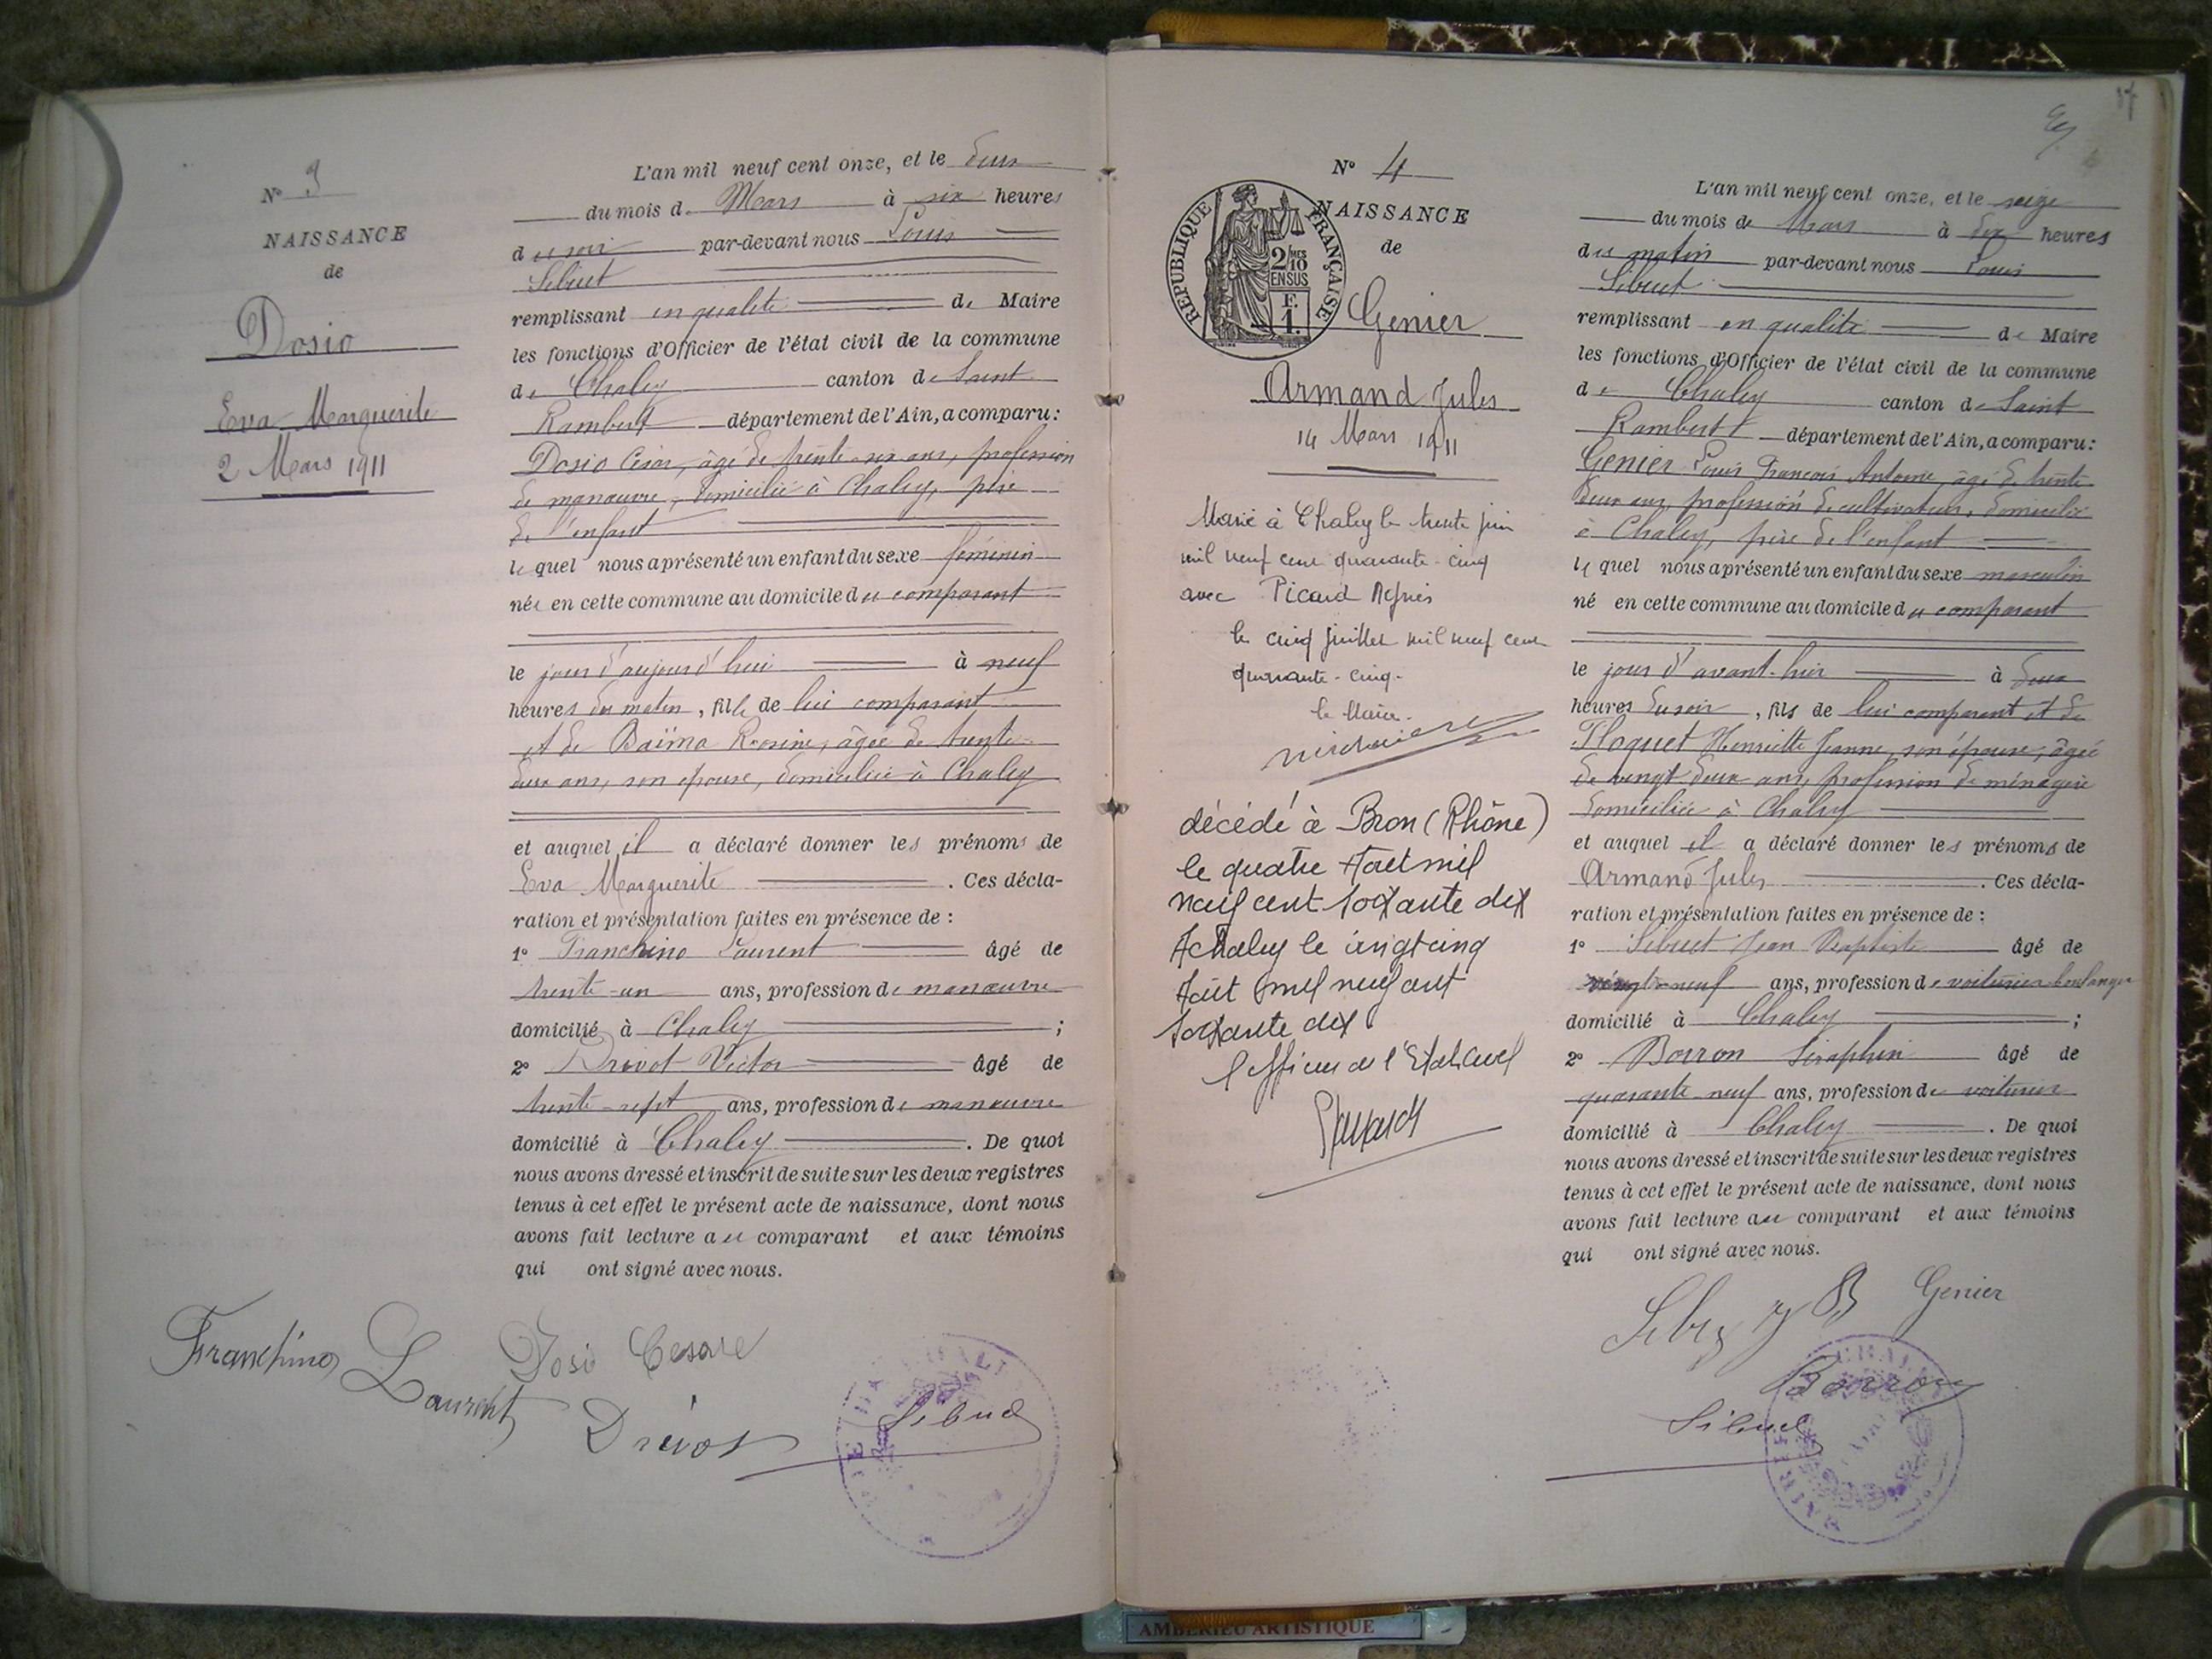 N° 3
NAISSANCE
de
Dosio
Eva Marguerite
2 Mars 1911
L'an mil neuf cent onze, et le deux
du mois de Mars à six heures
du soir par-devant nous Louis
Sibuet
remplissant en qualité de Maire
les fonctions d'Officier de l'état civil de la commune
de Chaley canton de Saint
Rambert département de l'Ain, a comparu:
Dosio César, âgé de trente-six ans, profession
de manœuvre, domicilié à Chaley, père
de l'enfant
lequel nous a présenté un enfant du sexe féminin
née en cette commune au domicile du comparant
le jour d'aujourd'hui à neuf
heures du matin, fille de lui comparant
et de Baïma Rosine, âgée de trente
deux ans, son épouse, domiciliée à Chaley
et auquel il a déclaré donner les prénoms de
Eva Marguerite. Ces décla-
ration et présentation faites en présence de :
1° Franchino Laurent âgé de
trente-un ans, profession de manœuvre
domicilié à Chaley ;
2° Drivot Victor âgé de
trente-sept ans, profession de manœuvre
domicilié à Chaley. De quoi
nous avons dressé et inscrit de suite sur les deux registres
tenus à cet effet le présent acte de naissance, dont nous
avons fait lecture au comparant et aux témoins
qui ont signé avec nous.
Franchino Laurent
Dosio Cesare
Drivot
Sibuet
N° 4
NAISSANCE
de
RÉPUBLIQUE FRANÇAISE
2/10 MES
EN SUS
F.
1.
Genier
Armand Jules
14 Mars 1911
Marié à Chaley le trente juin
mil neuf cent quarante-cinq
avec Picard Agnès
le cinq juillet mil neuf cent
quarante-cinq.
le Maire.
décédé à Bron (Rhône)
le quatre Août mil
neuf cent soixante dix
A Chaley le vingt cinq
Août mil neuf cent
soixante dix
l'officier de l'Etat Civil
17
L'an mil neuf cent onze, et le seize
du mois de Mars à dix heures
du matin par-devant nous Louis
Sibuet
remplissant en qualité de Maire
les fonctions d'Officier de l'état civil de la commune
de Chaley canton de Saint
Rambert département de l'Ain, a comparu:
Genier Louis François Antoine, âgé de trente
deux ans, profession de cultivateur, domicilié
à Chaley, père de l'enfant
lequel nous a présenté un enfant du sexe masculin
né en cette commune au domicile du comparant
le jour d'avant-hier à deux
heures du soir, fils de lui comparant et de
Floquet Henriette Jeanne, son épouse, âgée
de vingt-deux ans, profession de ménagère
domiciliée à Chaley
et auquel il a déclaré donner les prénoms de
Armand Jules. Ces décla-
ration et présentation faites en présence de :
1° Sibuet Jean Baptiste âgé de
vingt-neuf ans, profession de voiturier boulanger
domicilié à Chaley ;
2° Borron Séraphin âgé de
quarante-neuf ans, profession de voiturier
domicilié à Chaley. De quoi
nous avons dressé et inscrit de suite sur les deux registres
tenus à cet effet le présent acte de naissance, dont nous
avons fait lecture au comparant et aux témoins
qui ont signé avec nous.
Genier
Borron
Sibuet
AMBERIEU ARTISTIQUE